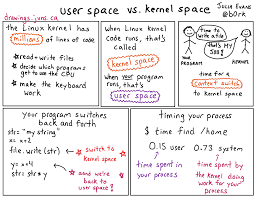 drawings.jvns.ca
user space vs. kernel space
JULIA EVANS
@b0rk
the Linux Kernel has
millions of lines of code
★ read + write files
★ decide which programs
get to use the CPU
★ make the keyboard
work
when Linux Kernel
Code runs, that's
called
kernel space
when your program
runs, that's
user space
time to
write a file
that's MY
job!
program
kernel
time for a
context switch
to kernel space
your program switches
back and forth
str = "my string"
x = x+2
file.write(str)
★ switch to
kernel space
y = x+4
str = str * y
★ and we're
back to
user space!
timing your process
$ time find /home
0.15 user 0.73 system
time spent in
your process
time spent by
the kernel doing
work for your process